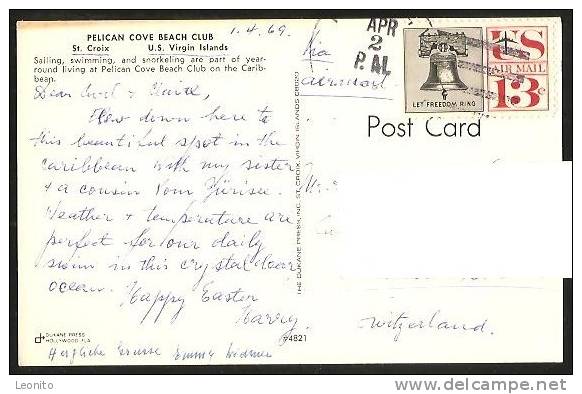 PELICAN COVE BEACH CLUB
St. Croix U.S. Virgin Islands
Sailing, swimming, and snorkeling are part of year-
round living at Pelican Cove Beach Club on the Carib-
bean.
1.4.69.
Dear &
Flew down here to
this beautiful spot in the
caribbean with my sister
+ a cousin vom Zürisee.
Weather + temperature are
perfect for our daily
swim in this crystal clear
ocean. Happy Easter
Harry
Herzliche Grüsse Emmy Widmer
DUKANE PRESS
HOLLYWOOD, FLA.
94821
THE DUKANE PRESS, INC. ST. CROIX, VIRGIN ISLANDS
Via
airmail
APR
2
P.M.
LET FREEDOM RING
US
AIR MAIL
13c
Post Card
Switzerland.
Leonito
delcampe.net